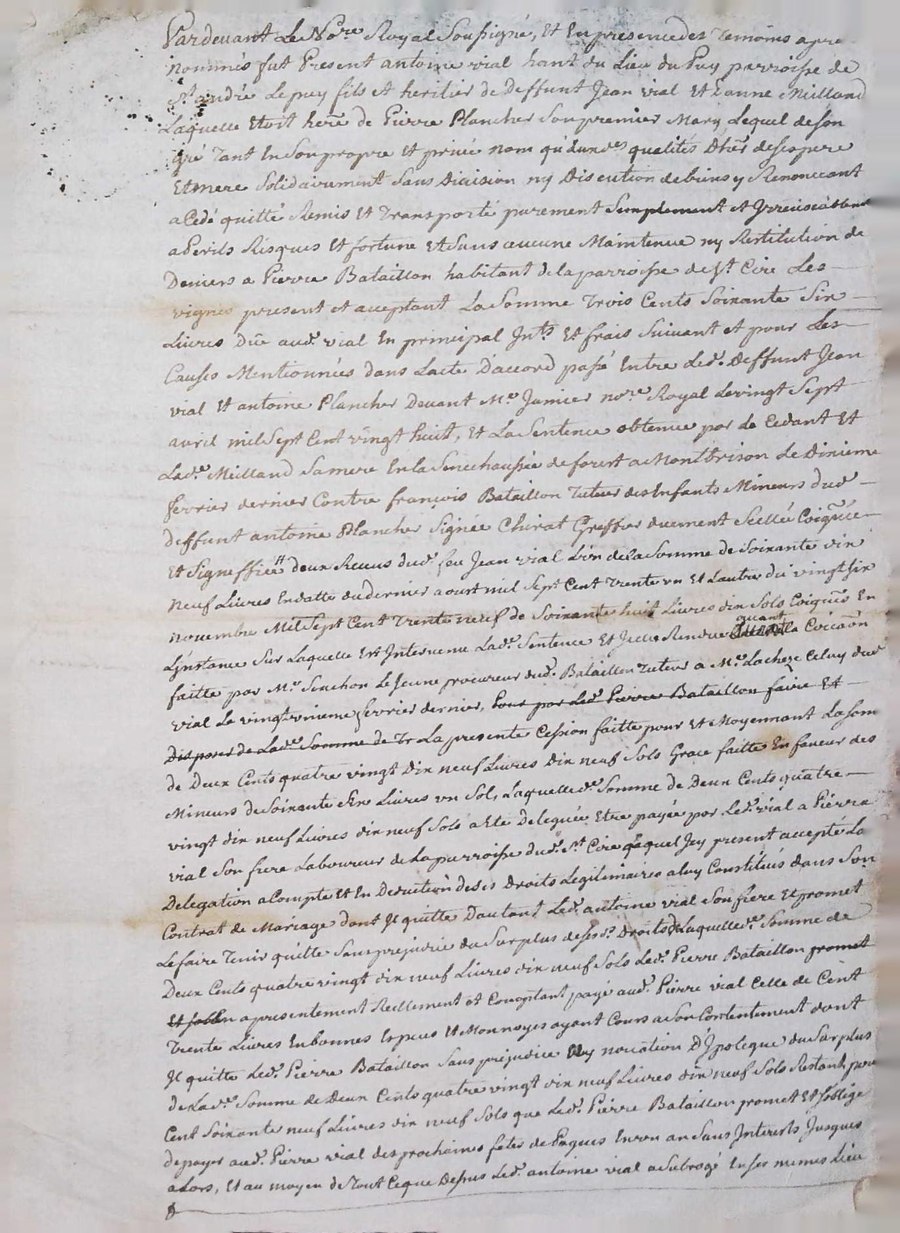 Pardevant Le No.re Royal Soussigné, Et En presence des Temoins apre
nommés fut Present antoine vial hant du Lieu du Puy parroisse de
St. andré Le puy fils et heritier de deffunt Jean vial Et Janne Milland
Laquelle Etoit here de Pierre Plancher Son premier Mary Lequel de Son
gré Tant En Son propre Et privé nom qu'aux des qualités D'her de Ses pere
Et Mere Solidairement Sans Division ny Discution de biens y Renonceant
a Cedé quitté Remis Et Transporté purement Simplement et Irrevocablement
a Perils Risques Et fortune Et Sans aucune Maintenue ny Restitution de
Deniers a Pierre Bataillon habitant de la parroisse de St. Cire Les
vignes present et aceptant La Somme Trois Cents Soixante Six
Livres Düe aud. vial En principal Ints. Et frais Suivant et pour Les
Causes Mentionnées dans L'acte D'accord passé Entre Led. Deffunt Jean
vial Et antoine Plancher Devant Me. Janier nore. Royal Le vingt Sept
avril mil Sept Cent vingt huit, Et La Sentence obtenue par Le Cedant Et
Lade. Milland Sa mere En la Senechaussée de forest a Montbrison Le Dixieme
fevrier dernier Contre françois Bataillon Tuteur des Infants Mineurs dud.
deffunt antoine Plancher Signée Chirat Greffier duement Scellée
Et Signeffiée # deux Receus dud. feu Jean vial L'un de la Somme de Soixante dix
neuf Livres En datte du dernier aoust mil Sept Cent Trente un Et L'autre du vingt Six
novembre Mil Sept Cent Trente neuf de Soixante huit Livres dix Solo En
L'instance Sur Laquelle Est Intervenu Lade. Sentence Et Icelle Rendue quant a La
faitte par Me. Le Jeune procureur dud. Bataillon Tuteur a Me. Lacheze Celuy dud
vial Le vingt unieme fevrier dernier, pour par Led. Pierre Bataillon faire Et
Disposer de Lade. Somme de Tr La presente Cession faitte pour Et Moyennant La Som
de Deux Cents quatre vingt Dix neuf Livres Dix neuf Sols Grace faitte En faveur des
Mineurs de Soixante Six Livres un Sol, Laquelle de. Somme de Deux Cents quatre
vingt dix neuf Livres dix neuf Sols a Eté Deleguée Etre payée par Led. vial a Pierre
vial Son frere Laboureur de La parroisse dud. St. Cire Lequel Icy present accepté La
Delegation a Compte Et En Deduction de Ses Droits Legitimaires a luy Constitués dans Son
Contrat de Mariage dont Il quitte D'autant Led. antoine vial Son frere Et promet
Le faire Tenir quitte Sans prejudice du Surplus de Ses d. Droits de Laquelle de. Somme de
Deux Cents quatre vingt dix neuf Livres dix neuf Sols Led. Pierre Bataillon promet
Et Soblin a presentement Reellement et Comptant payé aud. Pierre vial Celle de Cent
Trente Livres En bonnes Especes Et Monnoyes ayant Cours a Son Contentement dont
Il quitte Led. Pierre Bataillon Sans prejudice Ny novation D'Ipoteque du Surplus
de Lade. Somme de Deux Cents quatre vingt dix neuf Livres dix neuf Sols Restant, pour
Cent Soixante neuf Livres dix neuf Sols que Led. Pierre Bataillon promet Et S'oblige
de payer aud. Pierre vial des prochaines fetes de Paques En un an Sans Interests Jusques
a Lors, Et au moyen de Tout Ceque Dessus Led. antoine vial a Subrogé En Ses memes Lieu